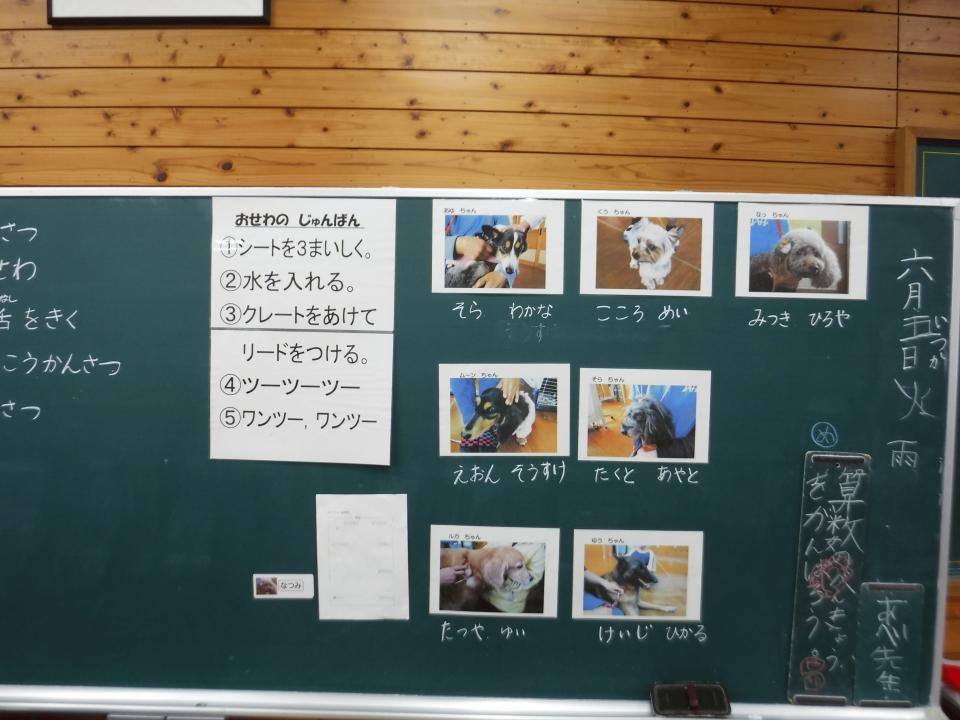 六月五日火 雨
いつか
め
算数のべんきょう
をがんばろう。
あべ先生
さつ
せわ
をきく
こうかんさつ
さつ
おせわの じゅんばん
①シートを3まいしく。
②水を入れる。
③クレートをあけて
リードをつける。
④ツーツーツー
⑤ワンツー, ワンツー
なつみ
あゆ ちゃん
そら わかな
くう ちゃん
こころ めい
なっ ちゃん
みつき ひろや
ムーン ちゃん
えおん そうすけ
そら ちゃん
たくと あやと
ルカ ちゃん
たつや ゆい
ゆう ちゃん
けいじ ひかる